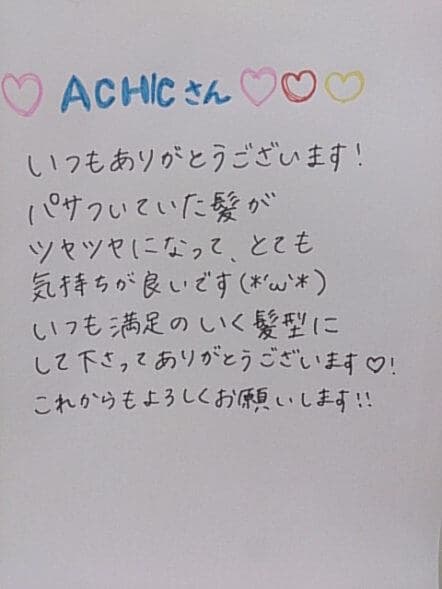 ♡ ACHICさん ♡♡♡
いつもありがとうございます!
パサついていた髪が
ツヤツヤになって、とても
気持ちが良いです(*'ω'*)
いつも満足のいく髪型に
して下さってありがとうございます♡!
これからもよろしくお願いします!!